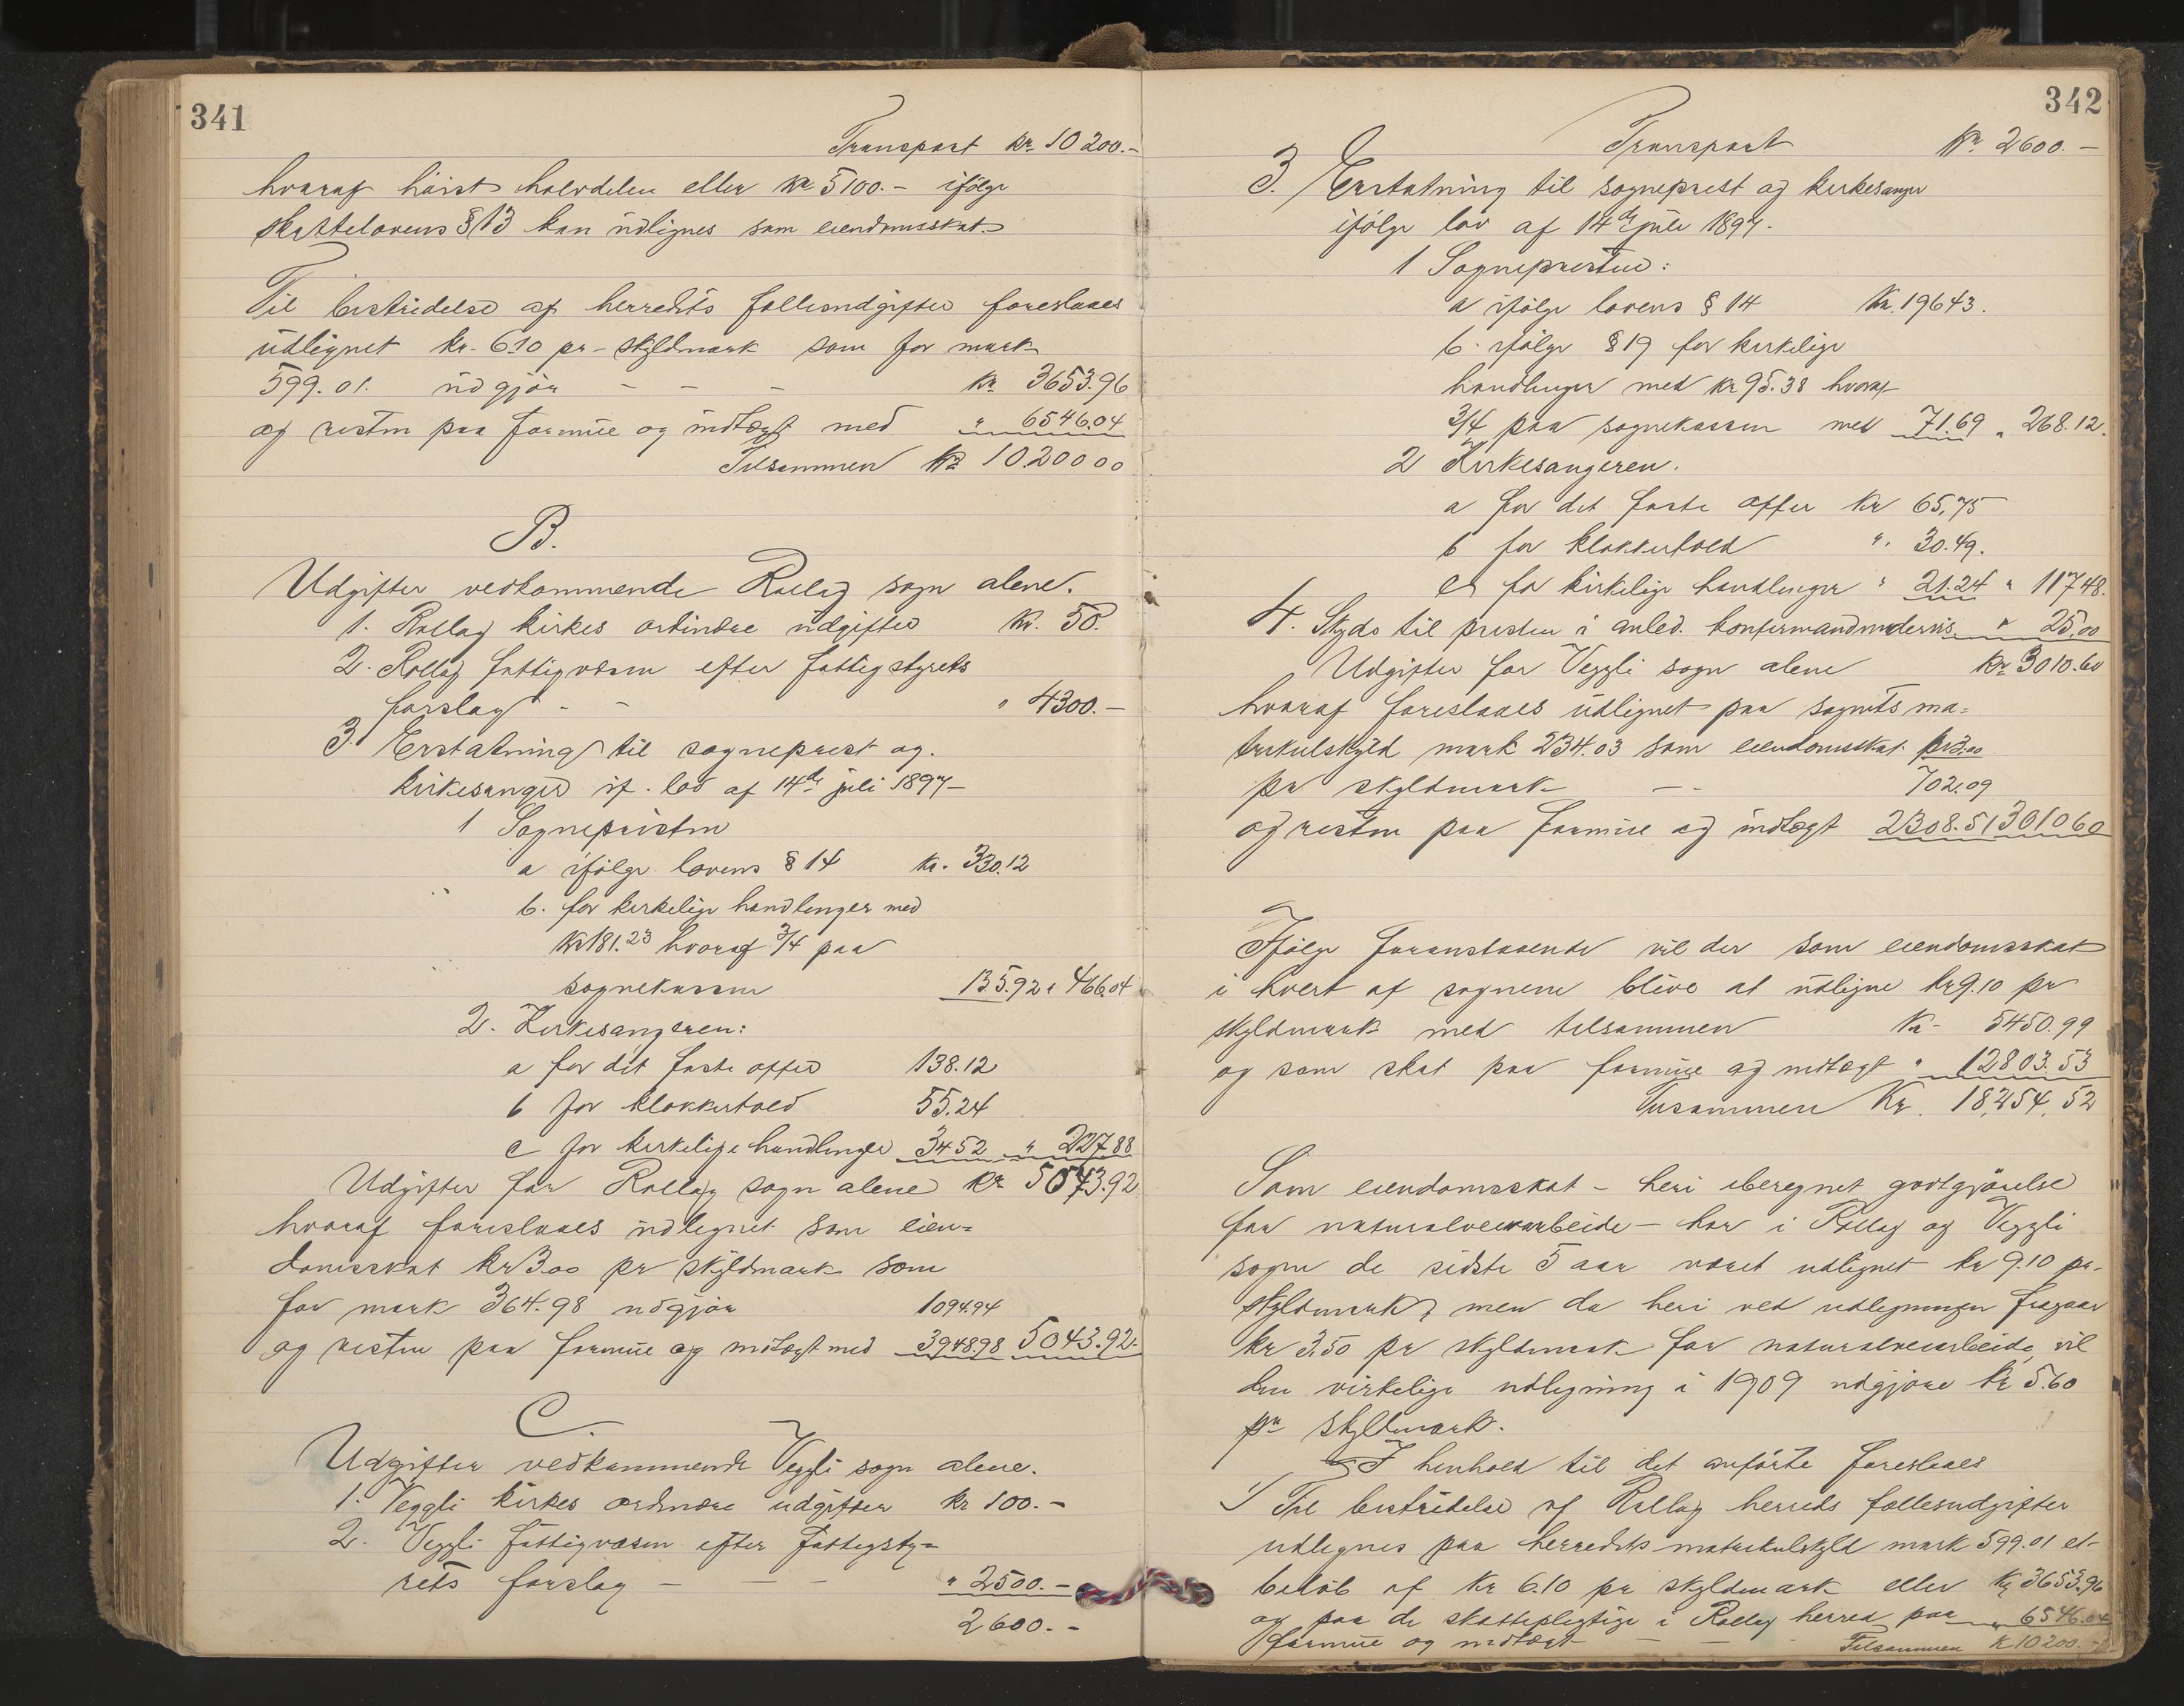 341
Transport kr. 10200.-
hvoraf höist halvdelen eller kr 5100.- ifölge
skattelovens § 13 kan udlignes som eiendomsskat.
Til bestridelse af herredets fællesudgifter foreslaaes
udlignet kr. 6.10 pr. skyldmark som for mark
599.01. udgjör - - - kr 3653.96
og resten paa formue og indtægt med " 6546.04
Tilsammen kr 10.200 00
B.
Udgifter vedkommende Rollag sogn alene.
1. Rollag kirkes ordinære udgifter kr. 50.
2. Rollag fattigvæsen efter fattigstyrets
forslag - - " 4300.-
3. Erstatning til sogneprest og
kirkesanger if. lov af 14de juli 1897-
1 Sognepresten
a ifölge lovens § 14 kr. 330.12
b. for kirkelige handlinger med
kr 181.23 hvoraf 3/4 paa
sognekassen 135.92 " 466.04
2. Kirkesangeren:
a for det faste offer 138.12
b for klokkertold 55.24
c for kirkelige handlinger 34 52 " 227 88
Udgifter for Rollag sogn alene kr 5043.92
hvoraf foreslaaes udlignet som eien=
domsskat kr 3.00 pr skyldmark som
for mark 364.98 udgjör 1094.94
og resten paa formue og indtægt med 3948.98 5043.92.
C.
Udgifter vedkommende Veggli sogn alene.
1. Veggli kirkes ordinære udgifter kr 100.-
2. Veggli fattigvæsen efter fattigsty=
rets forslag - - - " 2500.-
2600.-
342
Transport kr 2600.-
3. Erstatning til sogneprest og kirkesanger
ifölge lov af 14de juli 1897.
1 Sognepresten:
a ifölge lovens § 14 Kr. 196 43.
b. ifölge § 19 for kirkelige
handlinger med kr 95.38 hvoraf
3/4 paa sognekassen med 71.69 " 268.12.
2 Kirkesangeren.
a for det faste offer kr 65,75
b for klokkertold " 30.49.
c for kirkelige handlinger " 21.24 " 117 48.
4. Skyds til presten i anled. konfirmandundervis. " 25,00
Udgifter for Veggli sogn alene kr 3010.60
hvoraf foreslaaes udlignet paa sognets ma=
trikulskyld mark 234.03 som eiendomsskat kr 3.00
pr skyldmark - - 702.09
og resten paa formue og indtægt 2308.51 3010 60
Ifölge foranstaaende vil der som eiendomsskat
i hvert af sognene blive at udligne kr 9.10 pr
skyldmark med tilsammen Kr- 5450.99
og som skat paa formue og indtægt " 12803.53
Tilsammen Kr. 18,254,52
Som eiendomsskat - heri iberegnet godtgjörelse
for naturalveiarbeide - har i Rollag og Veggli
sogn de sidste 5 aar været udlignet kr 9.10 pr.
skyldmark, men da heri ved udligningen fragaar
kr 3.50 pr skyldmark for naturalveiarbeide, vil
den virkelige udligning i 1909 udgjöre kr 5.60
pr skyldmark.
I henhold til det anförte foreslaaes
1/ Til bestridelse af Rollag herreds fællesudgifter
udlignes paa herredets matrikulskyld mark 599.01 et
belöb af kr 6.10 pr skyldmark eller kr 3653.96
og paa de skattepligtige i Rollag herred paa " 6546.04
formue og indtægt - - - Tilsammen kr 10200.-